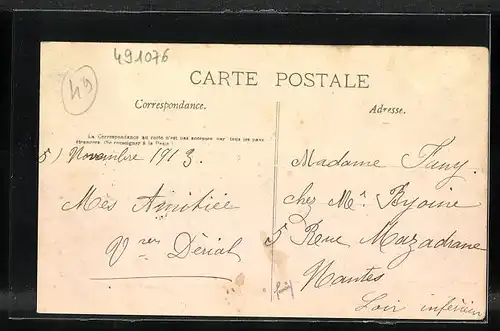 491076
49
CARTE POSTALE
Correspondance.
Adresse.
La Correspondance au recto n'est pas acceptée par tous les pays
étrangers. (Se renseigner à la Poste)
5) Novembre 1913.
Mes Amitiée
Madame
chez Mr
5 Rue Mazadrane
Nantes
Loir inférieur